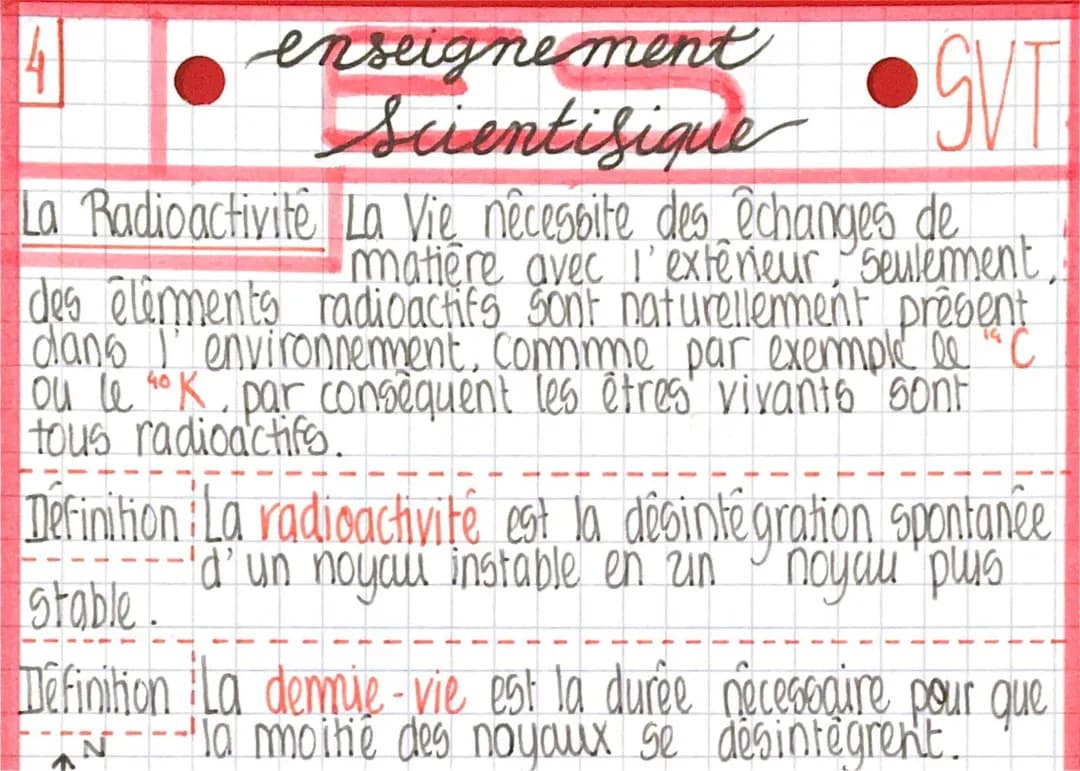 4
enseignement
ES
scientifique
SVT
La Radioactivité La Vie nécessite des échanges de
matière avec l'extérieur, seulement,
des éléments radioactifs sont naturellement présent
dans l'environnement, comme par exemple le ¹⁴C
ou le ⁴⁰K, par conséquent les êtres vivants sont
tous radioactifs.
Définition La radioactivité est la désintégration spontanée
d'un noyau instable en un noyau plus
stable.
Définition La demie-vie est la durée nécessaire pour que
la moitié des noyaux se désintégrent.
N